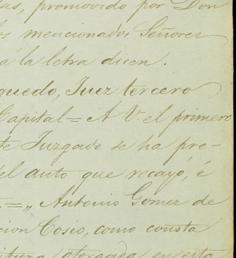 as, promovido por Don
os mencionados Señores
á la letra dicen.
quedo, Juez tercero
Capital = A V. el primero
te Juzgado se ha pre-
del auto que recayó, é
= „ Antonio Gomez de
cion Cosio, como consta
otorgada en esta